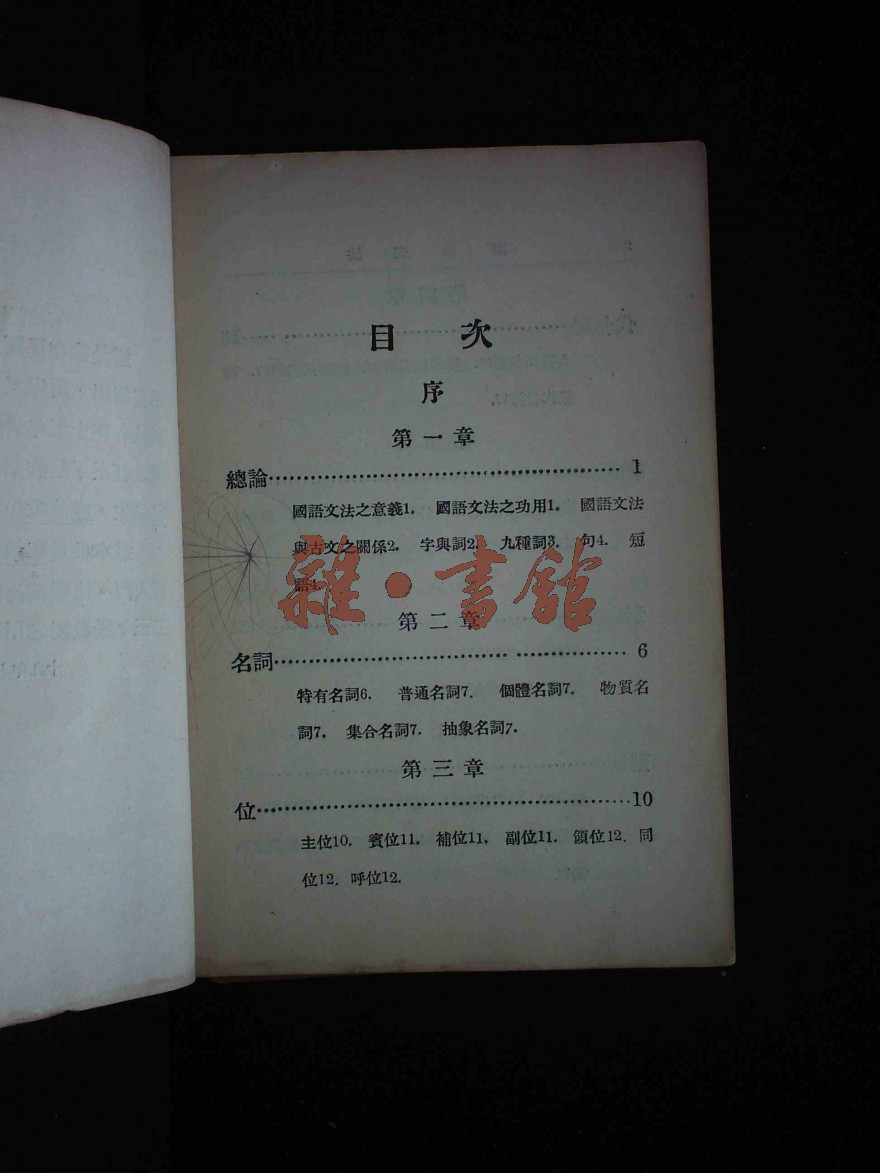 目 次
序
第一章
總論 1
國語文法之意義1. 國語文法之功用1. 國語文法
與古文之關係2. 字與詞2. 九種詞3. 句4. 短
語4.
雜·書館
第二章
名詞 6
特有名詞6. 普通名詞7. 個體名詞7. 物質名
詞7. 集合名詞7. 抽象名詞7.
第三章
位 10
主位10. 賓位11. 補位11. 副位11. 領位12. 同
位12. 呼位12.